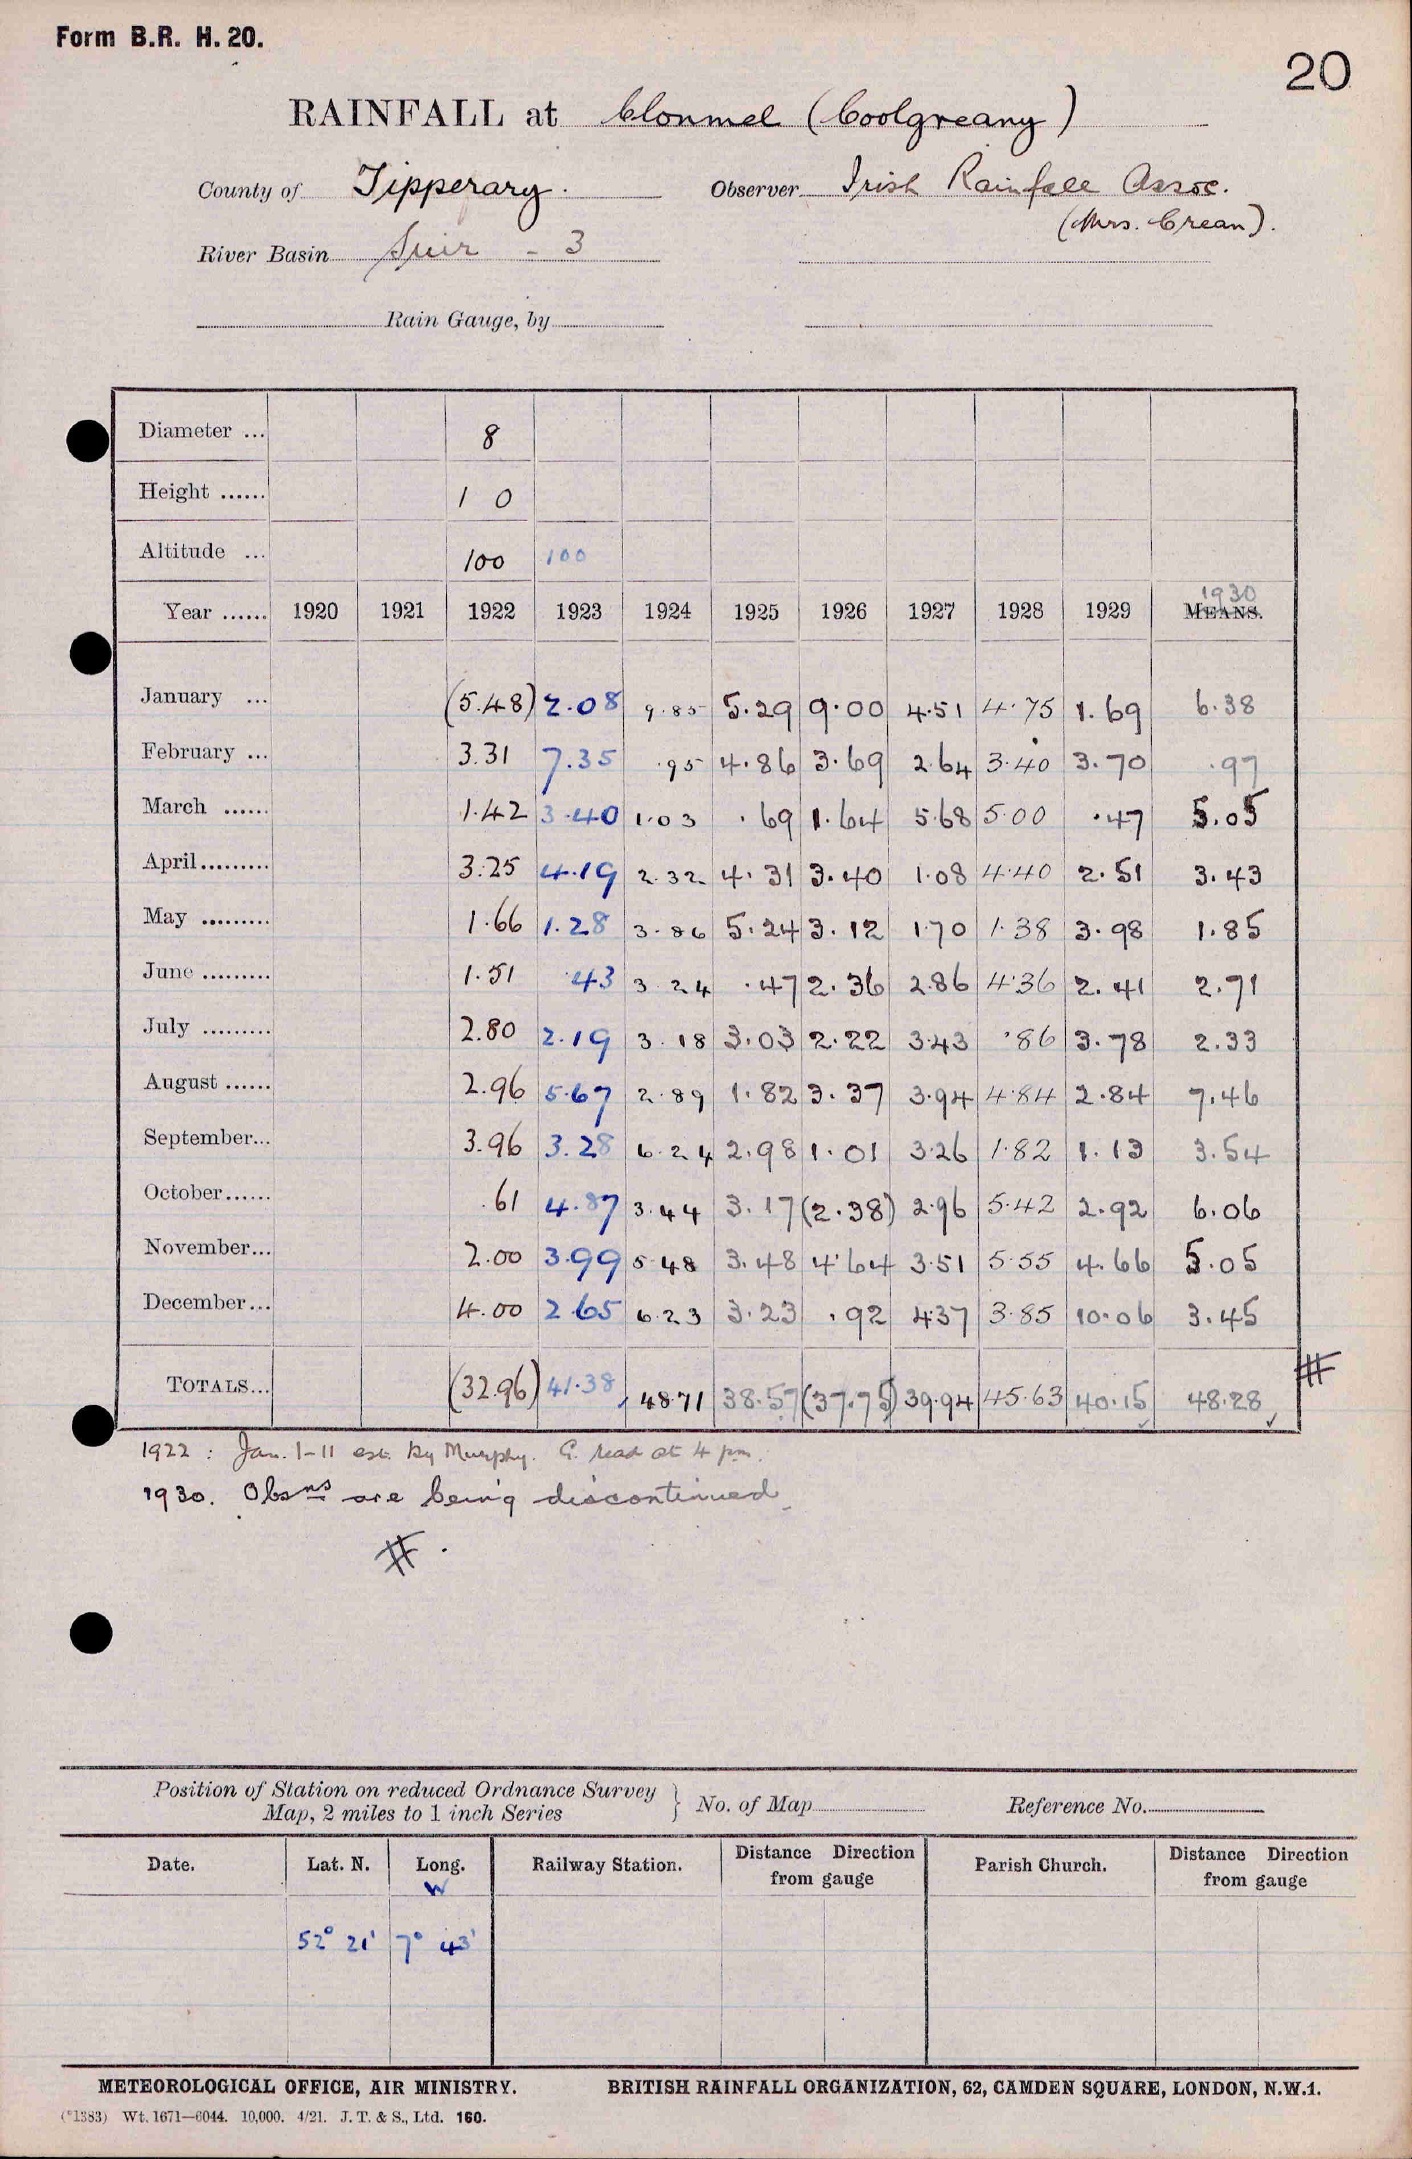 Form B.R. H. 20.
20
RAINFALL at Clonmel (Coolgreany)
County of Tipperary. Observer Irish Rainfall Assoc.
(Mrs. Crean).
River Basin Suir - 3
Rain Gauge, by
Diameter ... 8
Height ...... 1 0
Altitude ... 100 100
1930
Year ...... 1920 1921 1922 1923 1924 1925 1926 1927 1928 1929 MEANS.
January ... (5.48) 2.08 9.85 5.29 9.00 4.51 4.75 1.69 6.38
February ... 3.31 7.35 .95 4.86 3.69 2.64 3.40 3.70 .97
March ...... 1.42 3.40 1.03 .69 1.64 5.68 5.00 .47 5.05
April......... 3.25 4.19 2.32 4.31 3.40 1.08 4.40 2.51 3.43
May ......... 1.66 1.28 3.86 5.24 3.12 1.70 1.38 3.98 1.85
June ......... 1.51 .43 3.24 .47 2.36 2.86 4.36 2.41 2.71
July ......... 2.80 2.19 3.18 3.03 2.22 3.43 .86 3.78 2.33
August ...... 2.96 5.67 2.89 1.82 3.37 3.94 4.84 2.84 7.46
September... 3.96 3.28 6.24 2.98 1.01 3.26 1.82 1.13 3.54
October...... .61 4.87 3.44 3.17 (2.38) 2.96 5.42 2.92 6.06
November... 2.00 3.99 5.48 3.48 4.64 3.51 5.55 4.66 5.05
December... 4.00 2.65 6.23 3.23 .92 4.37 3.85 10.06 3.45
TOTALS... (32.96) 41.38 48.71 38.57 (37.75) 39.94 45.63 40.15 48.28 #
1922 : Jan. 1-11 est. by Murphy. G. read at 4 pm.
1930. Obsns are being discontinued
#.
Position of Station on reduced Ordnance Survey
Map, 2 miles to 1 inch Series } No. of Map Reference No.
Date. Lat. N. Long. W Railway Station. Distance Direction from gauge Parish Church. Distance Direction from gauge
52° 21' 7° 43'
METEOROLOGICAL OFFICE, AIR MINISTRY. BRITISH RAINFALL ORGANIZATION, 62, CAMDEN SQUARE, LONDON, N.W.1.
(*1383) Wt. 1671—6044. 10,000. 4/21. J. T. & S., Ltd. 160.